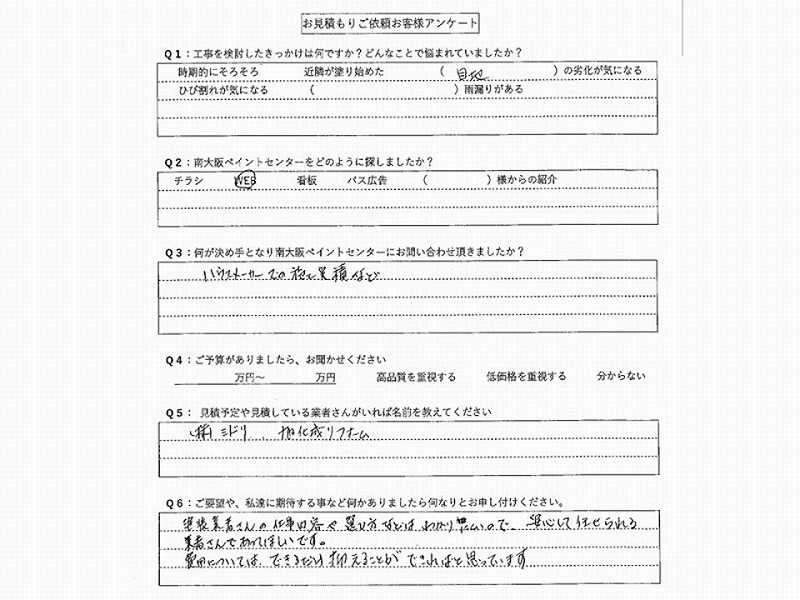 お見積もりご依頼お客様アンケート
Q1：工事を検討したきっかけは何ですか？どんなことで悩まれていましたか？
時期的にそろそろ 近隣が塗り始めた （ 目地 ）の劣化が気になる
ひび割れが気になる （ ）雨漏りがある
Q2：南大阪ペイントセンターをどのように探しましたか？
チラシ WEB 看板 バス広告 （ ）様からの紹介
Q3：何が決め手となり南大阪ペイントセンターにお問い合わせ頂きましたか？
ハウスメーカーでの施工実績など
Q4：ご予算がありましたら、お聞かせください
万円〜 万円 高品質を重視する 低価格を重視する 分からない
Q5： 見積予定や見積している業者さんがいれば名前を教えてください
（株）ミドリ、旭化成リフォーム
Q6：ご要望や、私達に期待する事など何かありましたら何なりとお申し付けください。
塗装業者さんの仕事内容や選び方などはわかり難いので、安心して任せられる
業者さんであってほしいです。
費用については、できるだけ抑えることができればと思っています